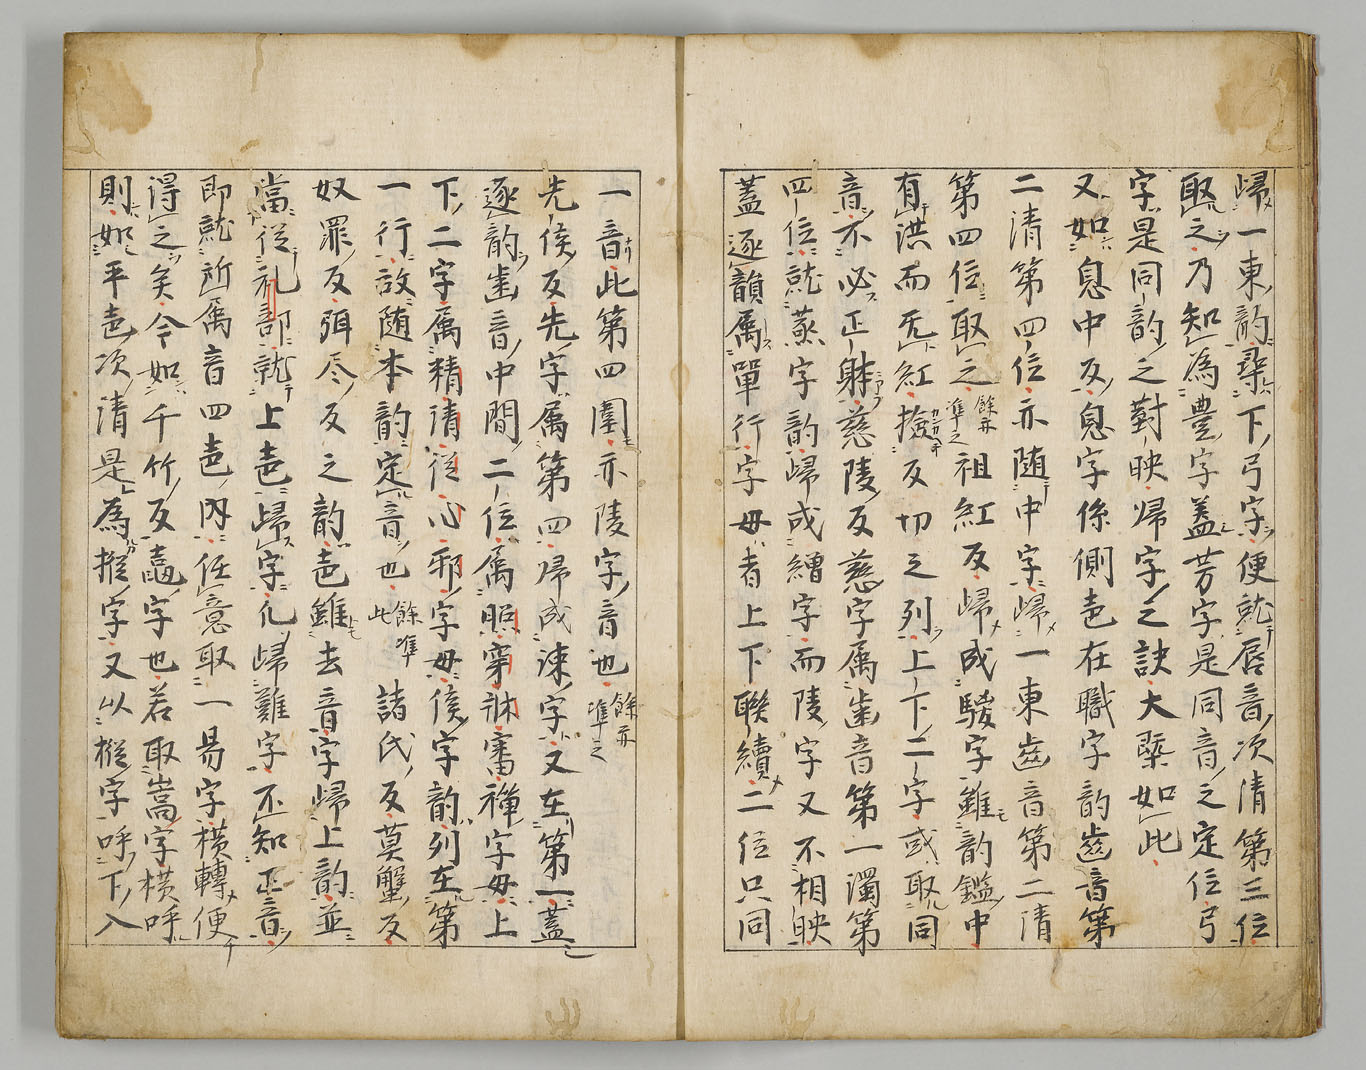 歸一東韵尋下弓字便就唇音次清第三位
取之乃知為豊字盖芳字是同音之定位弓
字是同韵之對映歸字之訣大槩如此
又如息中反息字係側声在職字韵齒音第
二清第四位亦随中字歸一東齒音第二清
第四位取之餘亦準之祖紅反歸成騣字雖韵鑑中
有洪而无紅撿反切之列上下二字或取同
音不必正躰慈陵反慈字属齒音第一濁第
四位就蒸字韵歸成繒字而陵字又不相映
蓋逐韻属單行字母者上下聯續二位只同
一音此第四圍亦陵字音也餘亦準之
先侯反先字属第四歸成涑字又在第一蓋
逐韵齒音中間二位属照穿牀審禅字母上
下二字属精清從心邪字母侯字韵列在第
一行故随本韵定音也餘準此諸氏反莫蟹反
奴罪反弭尽反之韵声雖去音字歸上韵並
當從礼部就上声歸字凡歸難字不知正音
即就所属音四声内任意取一易字横轉便
得之矣今如千竹反鼀字也若取嵩字横呼
則知平声次清是為樅字又以樅字呼下入